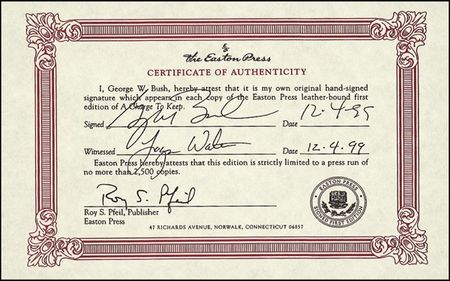 the Easton Press
CERTIFICATE OF AUTHENTICITY
I, George W. Bush, hereby attest that it is my own original hand-signed
signature which appears in each copy of the Easton Press leather-bound first
edition of A Charge To Keep.
Signed Date 12-4-99
Witnessed Date 12.4.99
Easton Press hereby attests that this edition is strictly limited to a press run of
no more than 2,500 copies.
Roy S. Pfeil
Roy S. Pfeil, Publisher
Easton Press
EASTON PRESS
SIGNED FIRST EDITION
47 RICHARDS AVENUE, NORWALK, CONNECTICUT 06857